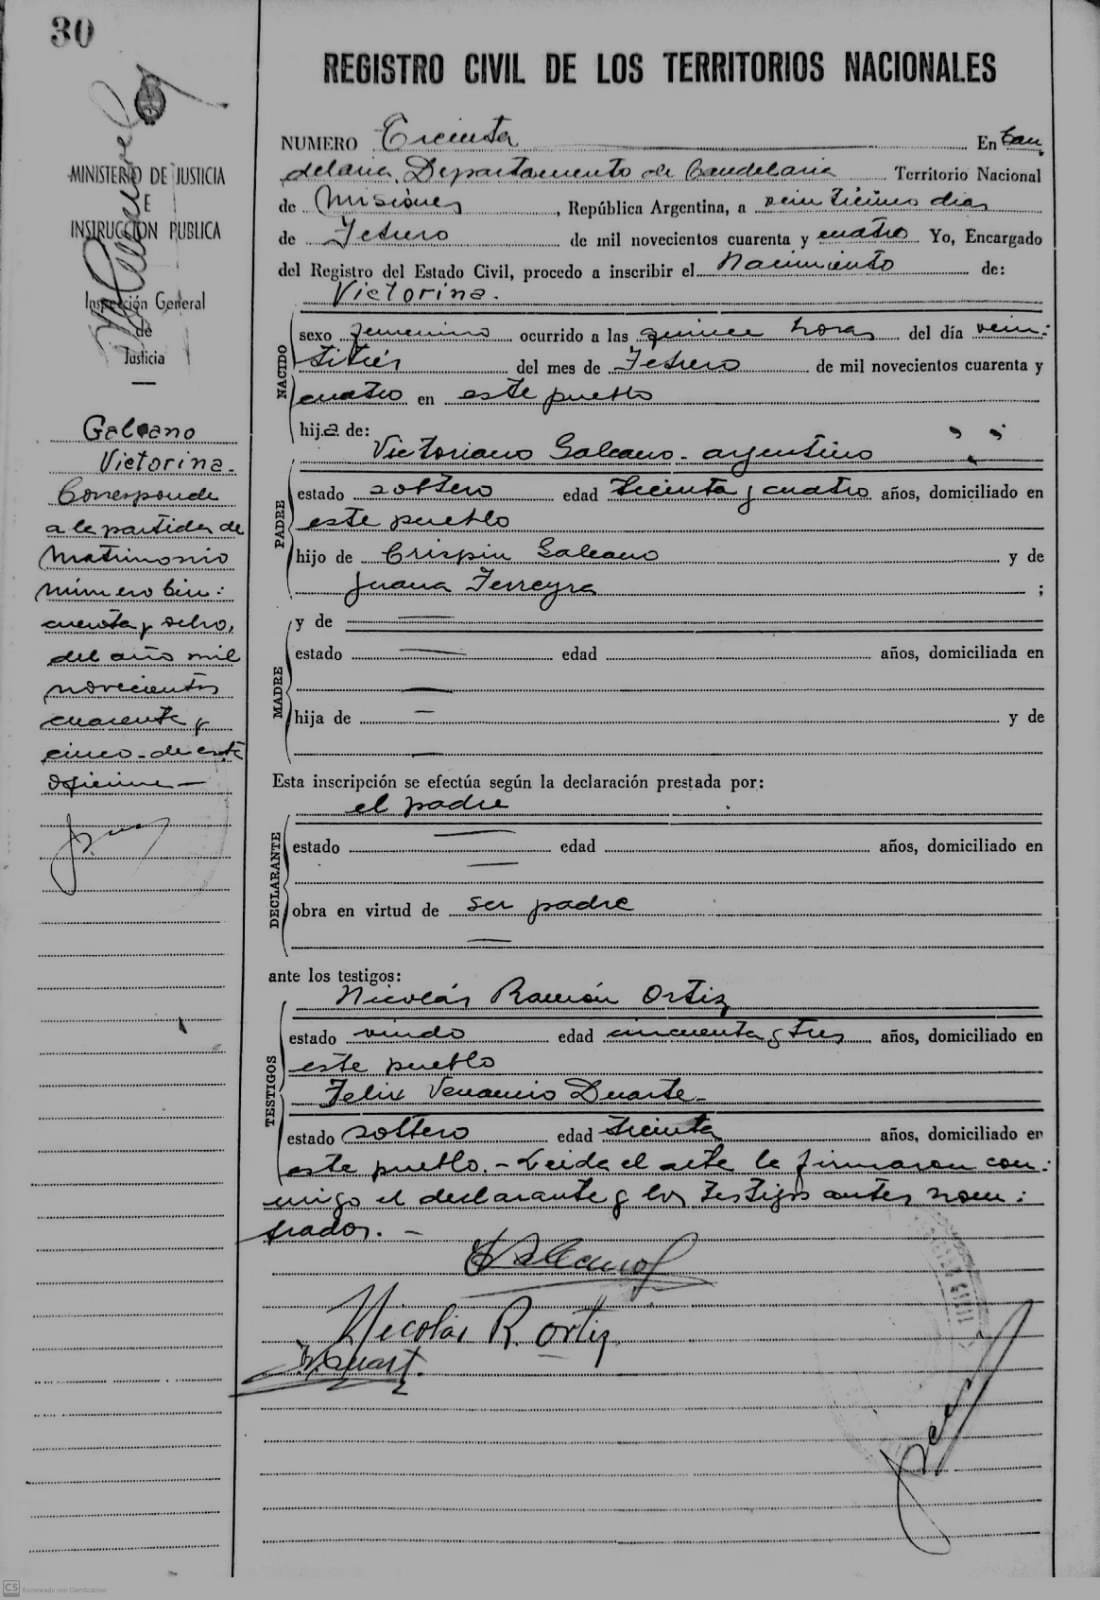 30
MINISTERIO DE JUSTICIA
E
INSTRUCCION PUBLICA
Inspección General
de
Justicia
Galeano
Victorina.
Corresponde
a la partida de
Matrimonio
número cin:
cuenta y ocho,
del año mil
novecientos
cuarenta y
cinco - de esta
oficina —
REGISTRO CIVIL DE LOS TERRITORIOS NACIONALES
NUMERO Treinta En Can
delaria, Departamento de Candelaria Territorio Nacional
de Misiones, República Argentina, a dias
de Febrero de mil novecientos cuarenta y cuatro Yo, Encargado
del Registro del Estado Civil, procedo a inscribir el Nacimiento de:
Victorina.
NACIDO
sexo femenino ocurrido a las quince horas del día vein:
titrés del mes de Febrero de mil novecientos cuarenta y
cuatro en este pueblo
hija de:
Victoriano Galeano - argentino
PADRE
estado soltero edad treinta y cuatro años, domiciliado en
este pueblo
hijo de Crispin Galeano y de
Juana Ferreyra ;
MADRE
y de —
estado — edad años, domiciliada en
—
hija de — y de
—
Esta inscripción se efectúa según la declaración prestada por:
el padre
DECLARANTE
estado — edad años, domiciliado en
—
obra en virtud de ser padre
—
ante los testigos:
Nicolás Ramón Ortiz
TESTIGOS
estado viudo edad cincuenta y tres años, domiciliado en
este pueblo
Felix Venancio Duarte -
estado soltero edad treinta años, domiciliado en
este pueblo. - Leida el acta la firmaron con:
migo el declarante y los testigos antes nom:
brados. —
Nicolás R. Ortiz
CS Escaneado con CamScanner